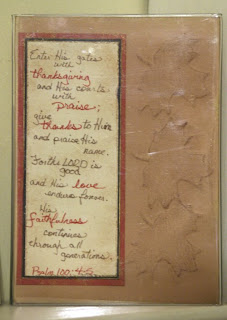 Enter His gates
with
thanksgiving
and His courts
with
praise;
give
thanks to Him
and praise His
name.
For the LORD is
good
and His love
endures forever.
His
faithfulness
continues
through all
generations.
Psalm 100:4-5